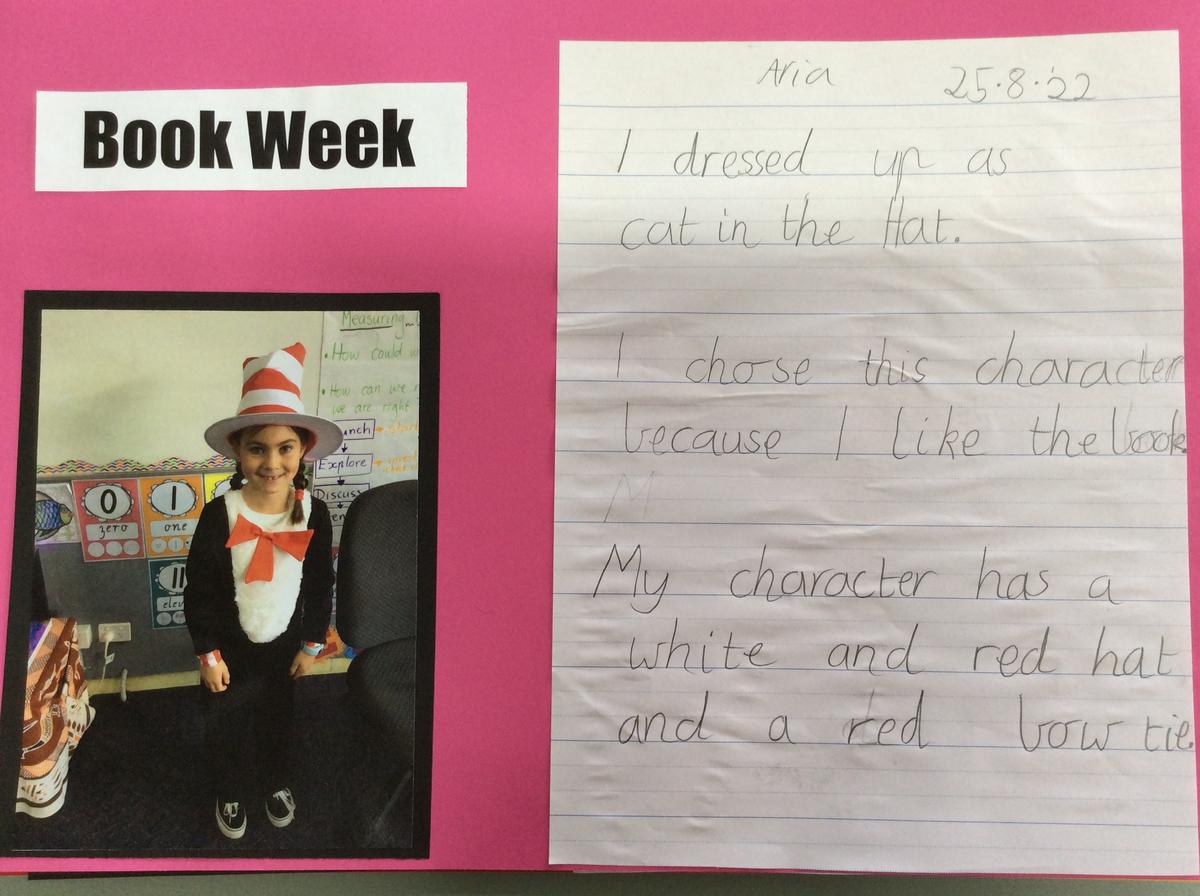 Book Week
Aria 25·8·'22
I dressed up as
cat in the Hat.
I chose this character
because I like the book.
M
My character has a
white and red hat
and a red bow tie.
Measuring
• How could w
• How can we
we are right
unch
Explore
Discuss
0
zero
1
one
11
elev